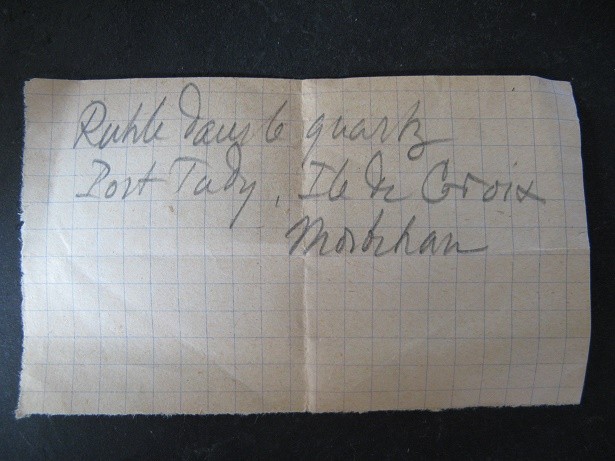 Rutile dans le quartz
Port Tudy, Ile de Groix
Morbihan